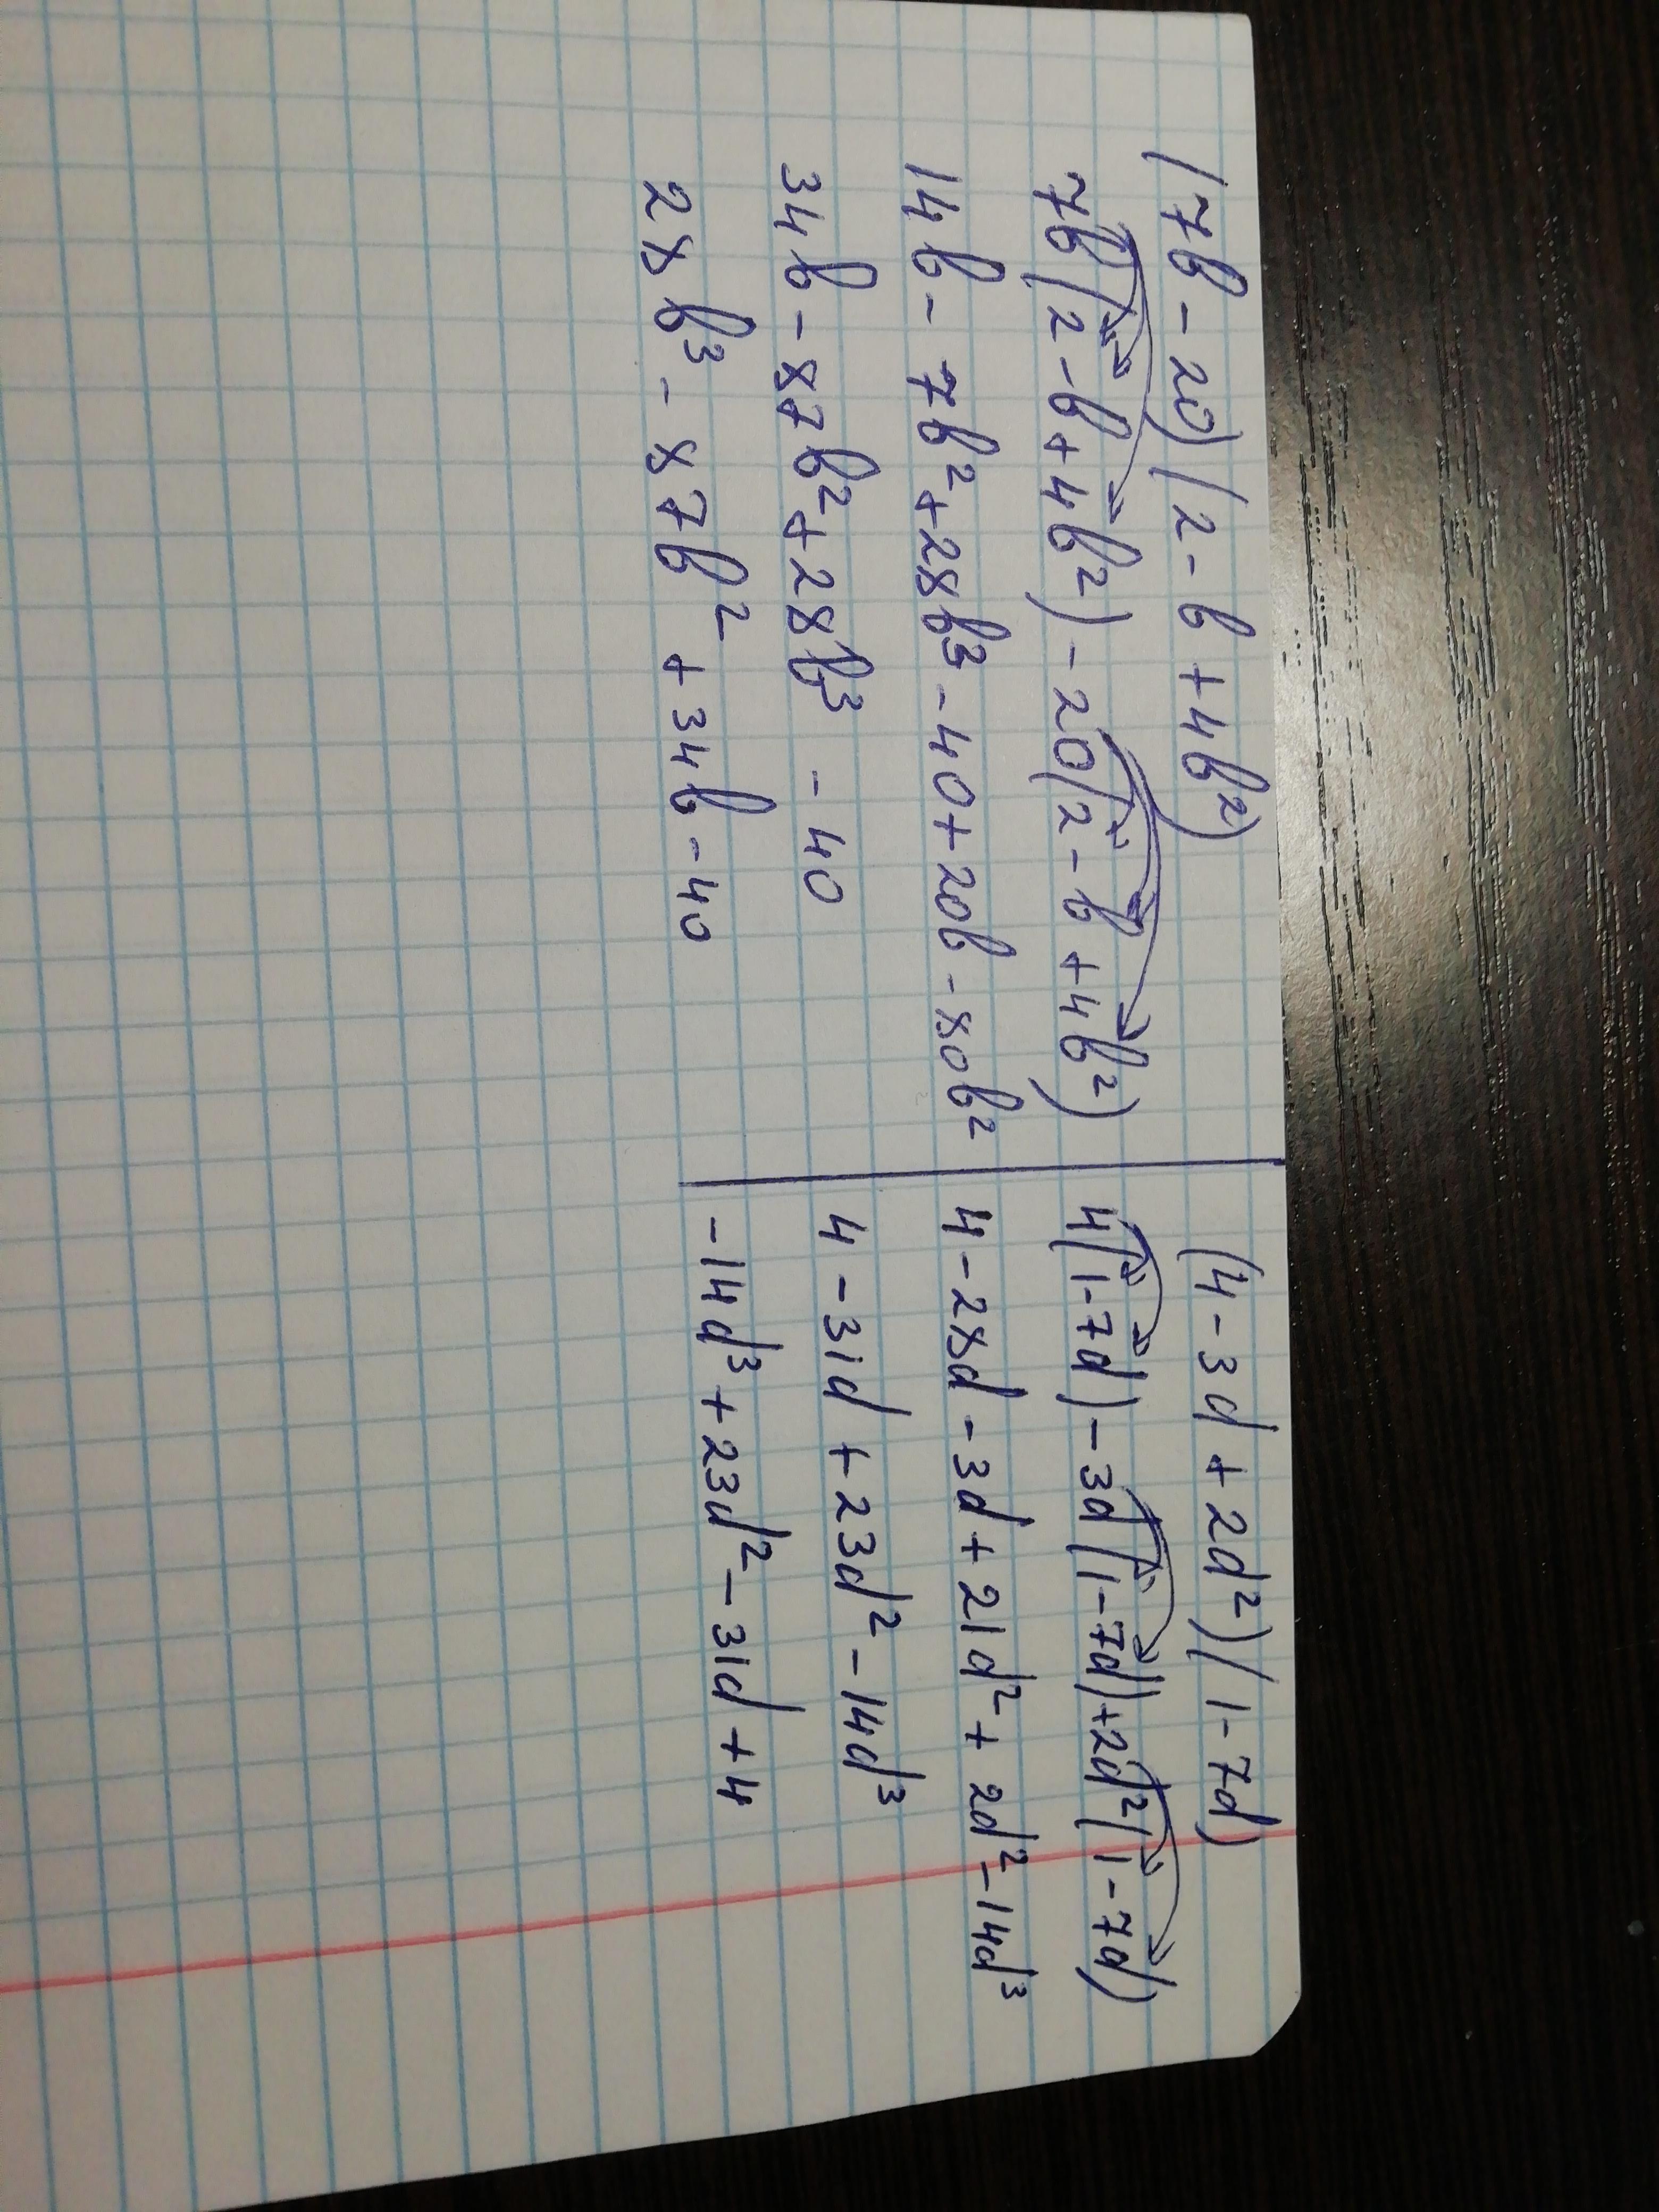 (7b - 20)(2 - b + 4b²)
7b(2 - b + 4b²) - 20(2 - b + 4b²)
14b - 7b² + 28b³ - 40 + 20b - 80b²
34b - 87b² + 28b³ - 40
28b³ - 87b² + 34b - 40
(4 - 3d + 2d²)(1 - 7d)
4(1 - 7d) - 3d(1 - 7d) + 2d²(1 - 7d)
4 - 28d - 3d + 21d² + 2d² - 14d³
4 - 31d + 23d² - 14d³
-14d³ + 23d² - 31d + 4